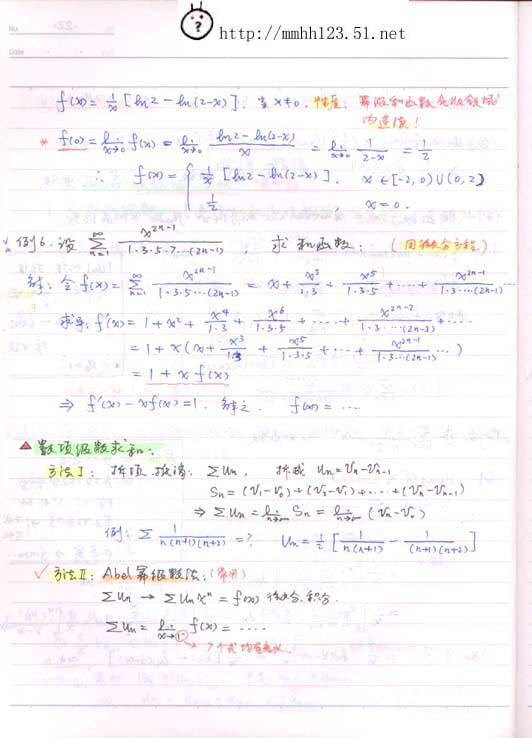 http://mmhh123.51.net
f(x) = 1/x [ln2 - ln(2-x)]. 当 x≠0. 性质: 幂级和函数在收敛域
内连续!
* f(0) = lim x→0 f(x) = lim x→0 (ln2 - ln(2-x))/x = lim x→0 1/(2-x) = 1/2
∴ f(x) = { 1/x [ln2 - ln(2-x)]. x∈[-2,0)∪(0,2)
1/2 x=0.
例6. 设 ∑ n=1 ∞ x^(2n-1)/(1·3·5·7…(2n-1)), 求和函数: (用微分方程)
解: 令 f(x) = ∑ n=1 ∞ x^(2n-1)/(1·3·5…(2n-1)) = x + x^3/(1·3) + x^5/(1·3·5) + … + x^(2n-1)/(1·3·5…(2n-1)) …
求导: f'(x) = 1 + x^2 + x^4/(1·3) + x^6/(1·3·5) + … + x^(2n-2)/(1·3…(2n-3)) + …
= 1 + x(x + x^3/(1·3) + x^5/(1·3·5) + … + x^(2n-1)/(1·3…(2n-1)) …)
= 1 + x f(x)
⇒ f'(x) - xf(x) = 1. 解之. f(x) = ….
▲ 数项级数求和:
方法I: 拆项. 抵消: ∑Un, 拆成 Un = Vn - Vn-1
Sn = (V1-V0) + (V2-V1) + … + (Vn-Vn-1)
⇒ ∑Un = lim n→∞ Sn = lim n→∞ (Vn-V0)
例: ∑ 1/(n(n+1)(n+2)) = ? Un = 1/2 [1/(n(n+1)) - 1/((n+1)(n+2))]
✓ 方法II: Abel幂级数法: (常用)
∑Un → ∑Un x^n = f(x) 微分. 积分.
∑Un = lim x→1- f(x) = ….